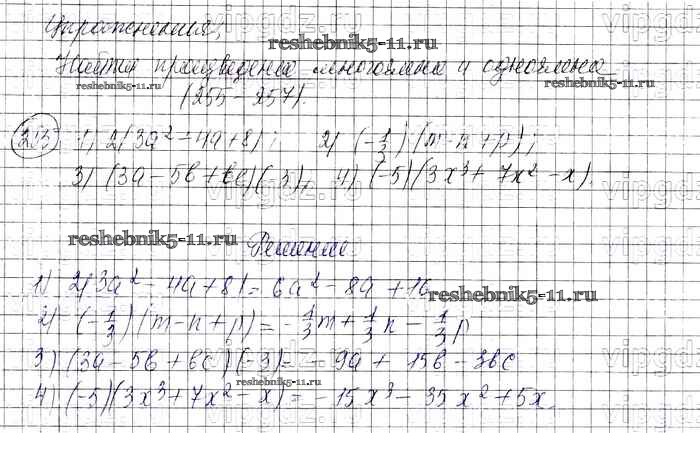 Упражнения,
reshebnik5-11.ru
Найти произведение многочлена и одночлена
reshebnik5-11.ru reshebnik5-11.ru
(255-257).
255 1) 2(3a² - 4a + 8); 2) (-1/3)(m - n + p);
3) (3a - 5b + bc)(-3), 4) (-5)(3x³ + 7x² - x).
reshebnik5-11.ru Решение.
1) 2(3a² - 4a + 8) = 6a² - 8a + 16
reshebnik5-11.ru
2) (-1/3)(m - n + p) = -1/3m + 1/3n - 1/3p
3) (3a - 5b + bc)(-3) = -9a + 15b - 3bc
reshebnik5-11.ru
4) (-5)(3x³ + 7x² - x) = -15x³ - 35x² + 5x.